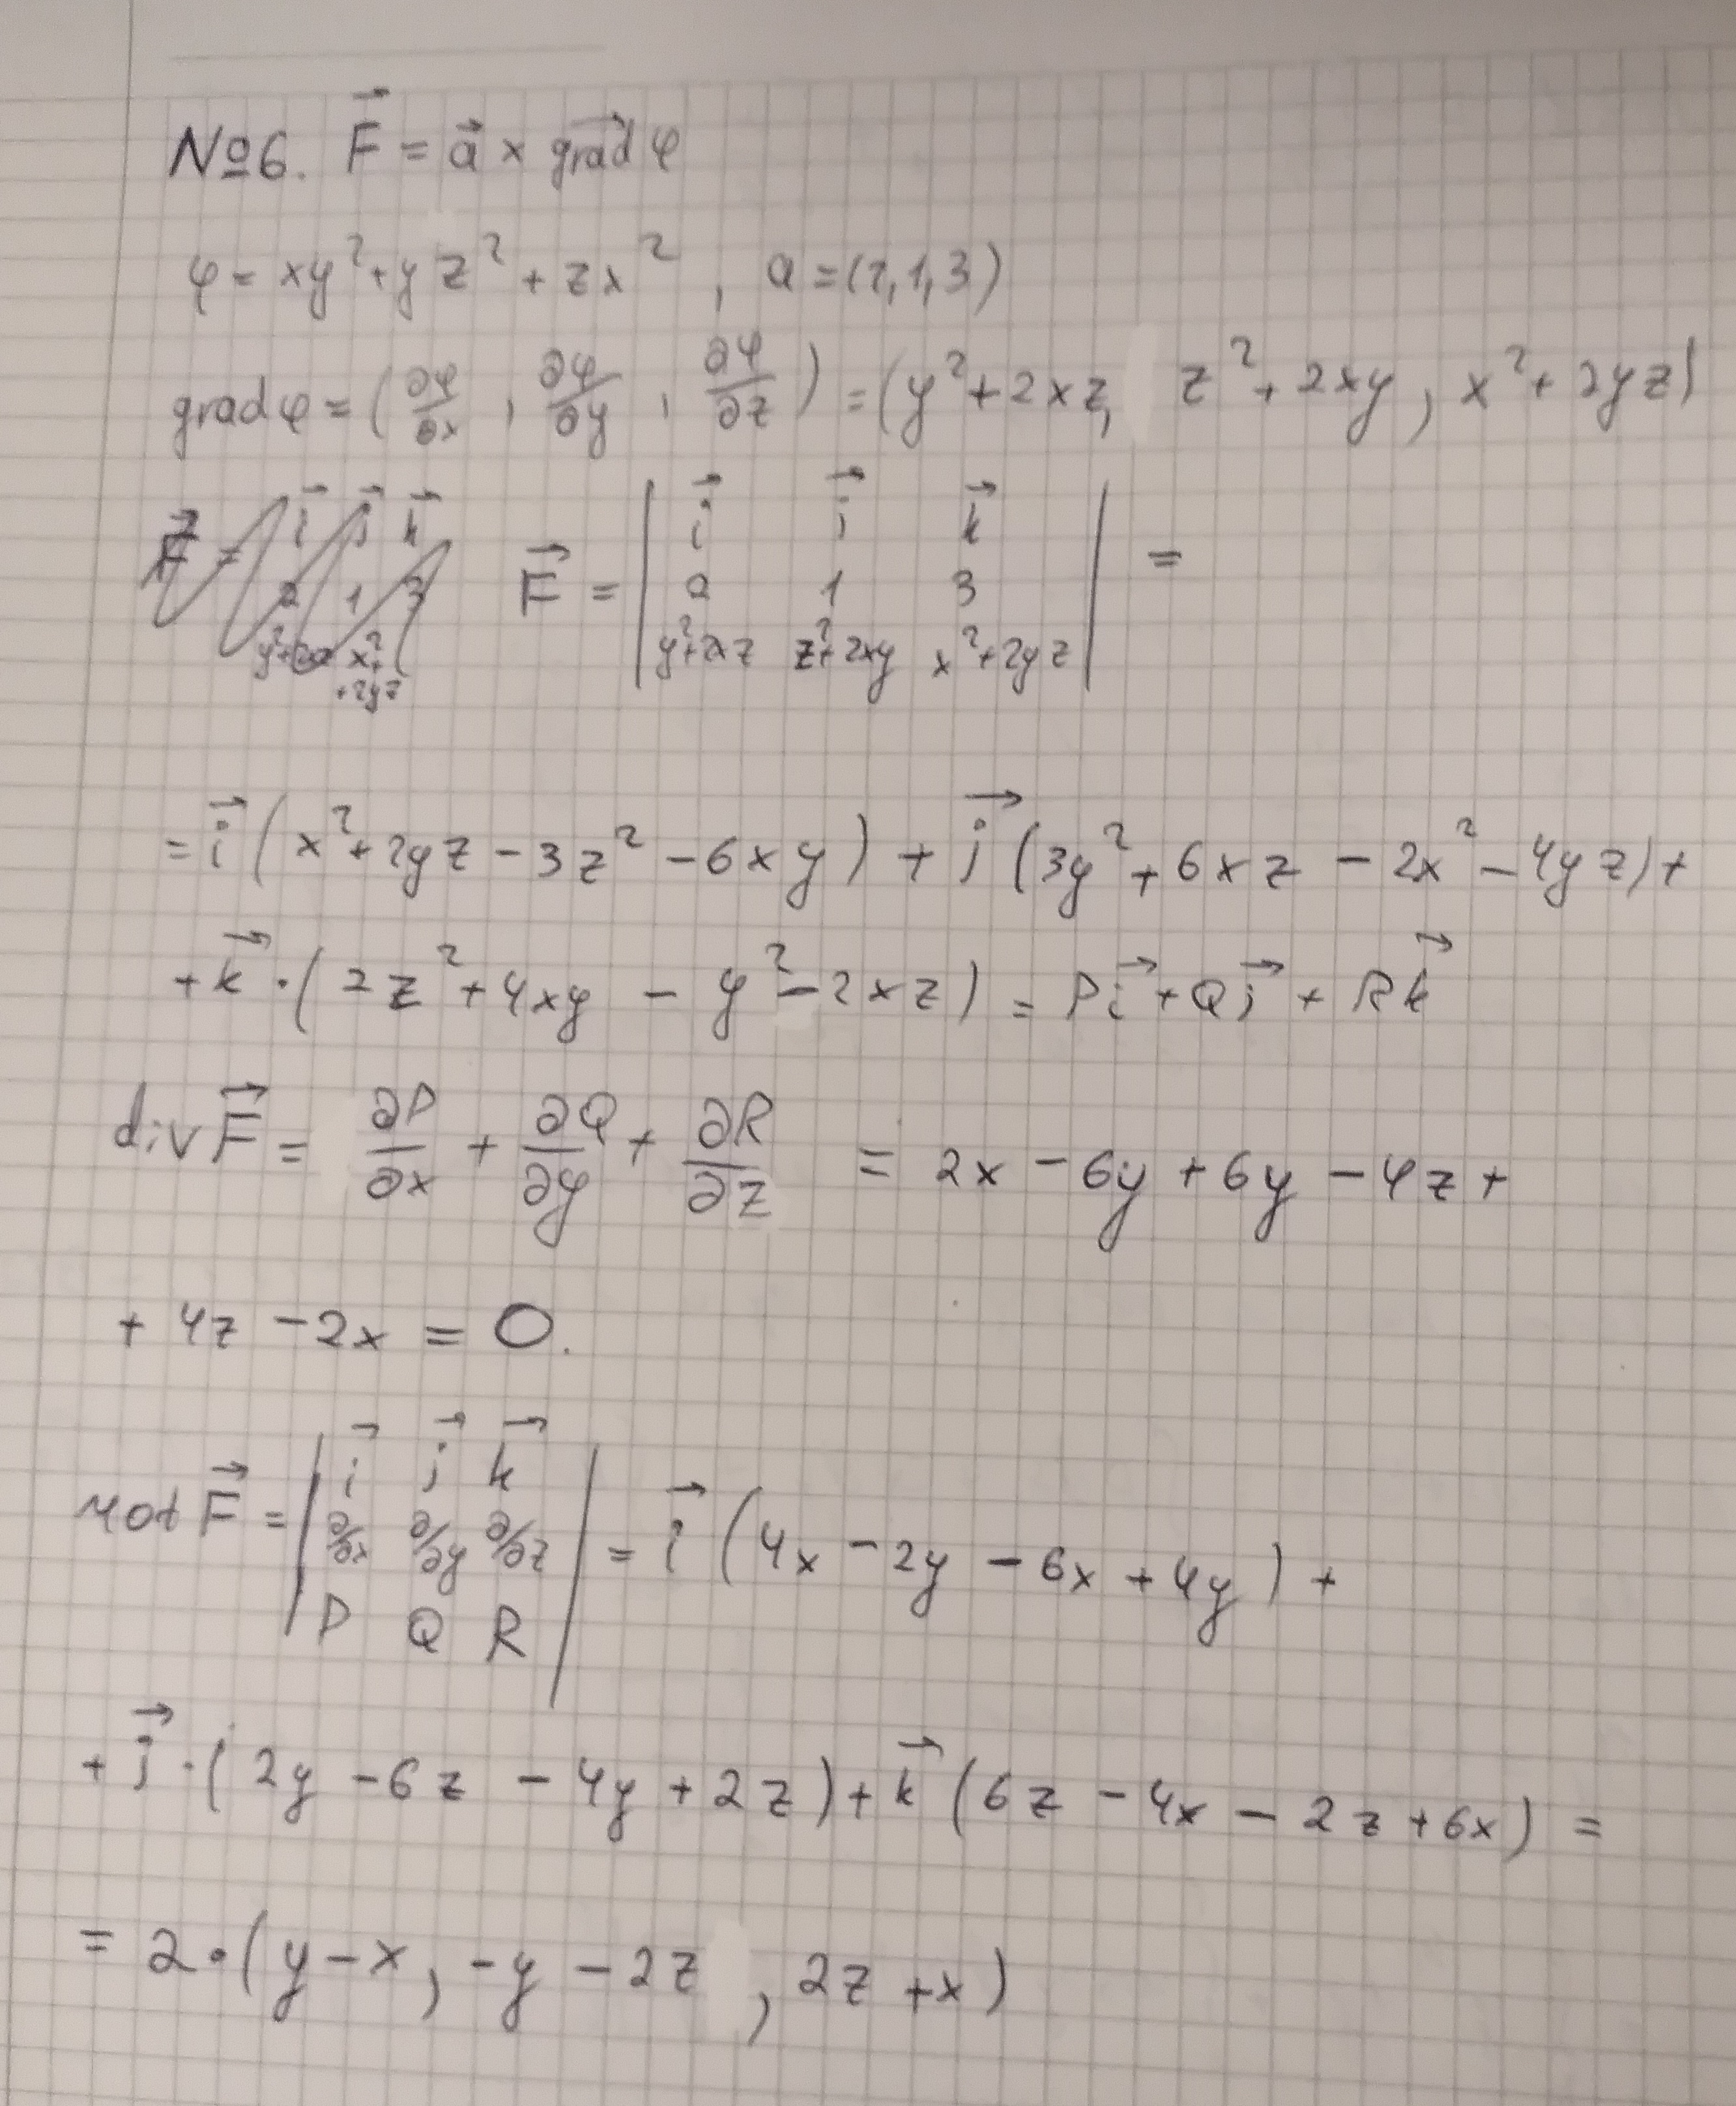 №6. F⃗ = a⃗ × grad φ
φ = xy² + yz² + zx² , a = (2, 1, 3)
grad φ = (∂φ/∂x , ∂φ/∂y , ∂φ/∂z) = (y² + 2xz, z² + 2xy, x² + 2yz)
F⃗ = | i⃗ j⃗ k⃗ | =
| 2 1 3 |
| y²+2xz z²+2xy x²+2yz |
= i⃗ (x² + 2yz − 3z² − 6xy) + j⃗ (3y² + 6xz − 2x² − 4yz) +
+ k⃗ · (2z² + 4xy − y² − 2xz) = Pi⃗ + Qj⃗ + Rk⃗
div F⃗ = ∂P/∂x + ∂Q/∂y + ∂R/∂z = 2x − 6y + 6y − 4z +
+ 4z − 2x = 0.
rot F⃗ = | i⃗ j⃗ k⃗ |
| ∂/∂x ∂/∂y ∂/∂z | = i⃗ (4x − 2y − 6x + 4y) +
| P Q R |
+ j⃗ · (2y − 6z − 4y + 2z) + k⃗ (6z − 4x − 2z + 6x) =
= 2 · (y − x, −y − 2z , 2z + x)